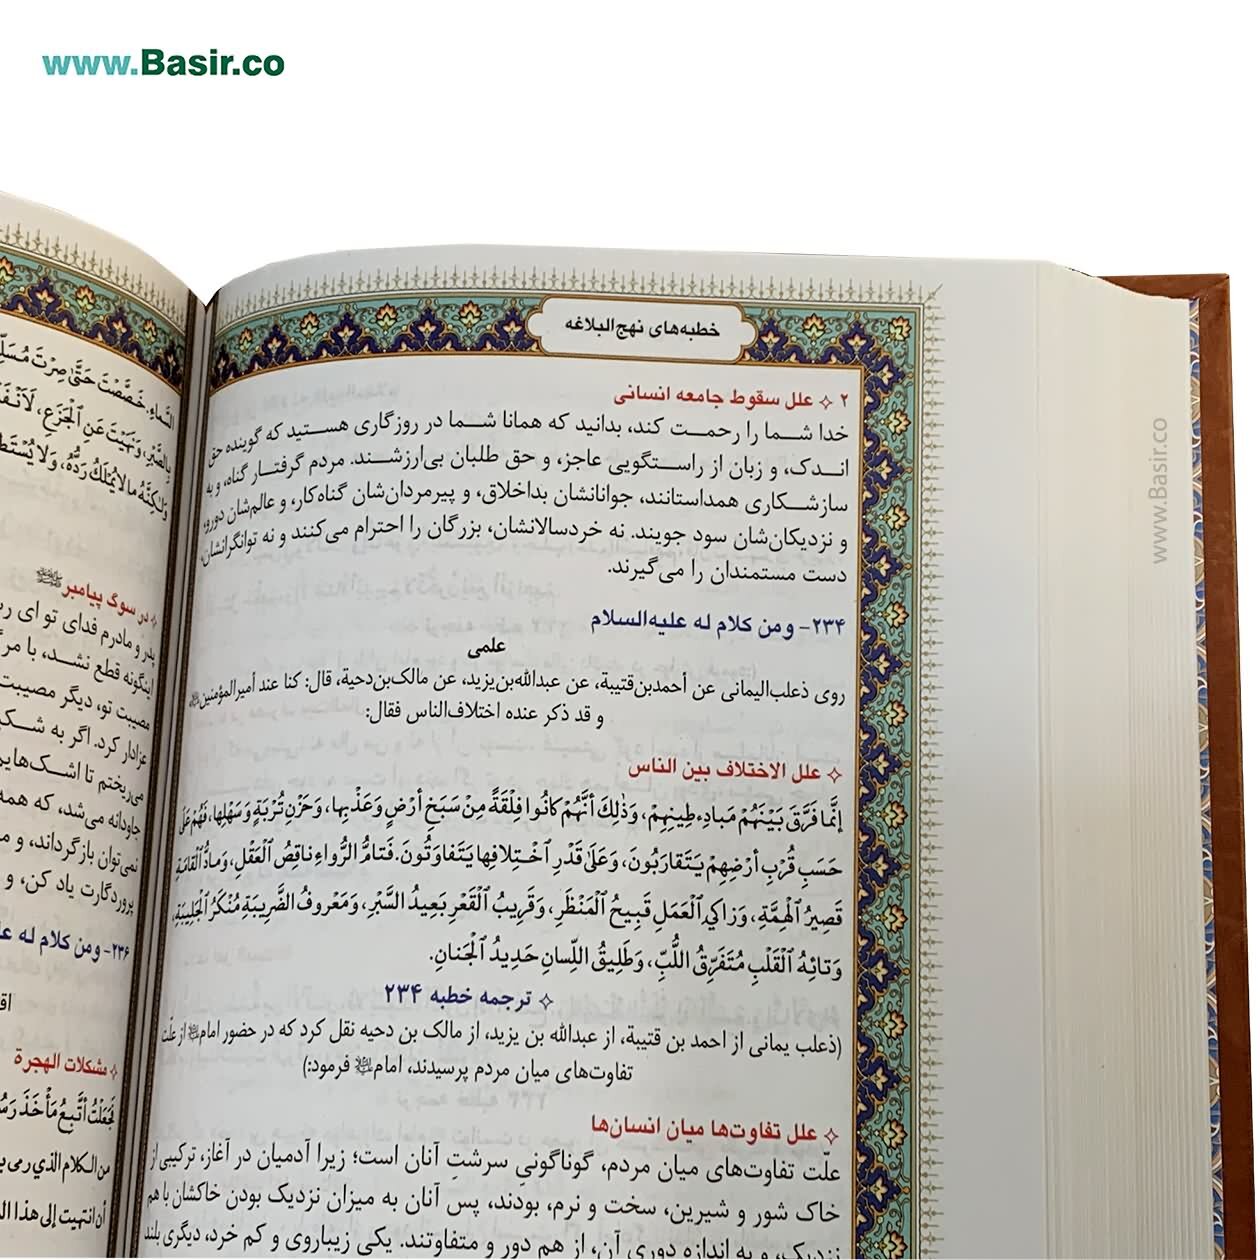 www.Basir.co
خطبه‌های نهج‌البلاغه
۲ علل سقوط جامعه انسانی
خدا شما را رحمت کند، بدانید که همانا شما در روزگاری هستید که گوینده حق
اندک، و زبان از راستگویی عاجز، و حق طلبان بی‌ارزشند. مردم گرفتار گناه، و به
سازشکاری همداستانند، جوانانشان بداخلاق، و پیرمردان‌شان گناه‌کار، و عالم‌شان دورو،
و نزدیکان‌شان سود جویند. نه خردسالانشان، بزرگان را احترام می‌کنند و نه توانگرانشان،
دست مستمندان را می‌گیرند.
۲۳۴- و من کلام له علیه‌السلام
علمی
روی ذعلب‌الیمانی عن أحمدبن‌قتیبة، عن عبدالله‌بن‌یزید، عن مالک‌بن‌دحیة، قال: کنا عند أمیرالمؤمنین
و قد ذکر عنده اختلاف‌الناس فقال:
علل الاختلاف بین الناس
إِنَّما فَرَّقَ بَيْنَهُمْ مَبادِءُ طِينِهِمْ، وَذٰلِكَ أَنَّهُمْ كانُوا فِلْقَةً مِنْ سَبَخِ أَرْضٍ وَعَذْبِها، وَحَزْنِ تُرْبَةٍ وَسَهْلِها، فَهُمْ عَلَى
حَسَبِ قُرْبِ أَرْضِهِمْ يَتَقارَبُونَ، وَعَلَىٰ قَدْرِ اخْتِلافِها يَتَفاوَتُونَ. فَتامُّ الرُّواءِ ناقِصُ الْعَقْلِ، وَمادُّ الْقامَةِ
قَصِيرُ الْهِمَّةِ، وَزاكِي الْعَمَلِ قَبِيحُ الْمَنْظَرِ، وَقَرِيبُ الْقَعْرِ بَعِيدُ السَّبْرِ، وَمَعْرُوفُ الضَّرِيبَةِ مُنْكَرُ الْجَلِيبَةِ،
وَتائِهُ الْقَلْبِ مُتَفَرِّقُ اللُّبِّ، وَطَلِيقُ اللِّسانِ حَدِيدُ الْجَنانِ.
ترجمه خطبه ۲۳۴
(ذعلب یمانی از احمد بن قتیبة، از عبدالله بن یزید، از مالک بن دحیه نقل کرد که در حضور امام از علّت
تفاوت‌های میان مردم پرسیدند، امام فرمود:)
علل تفاوت‌ها میان انسان‌ها
علّت تفاوت‌های میان مردم، گوناگونیِ سرشتِ آنان است؛ زیرا آدمیان در آغاز، ترکیبی از
خاک شور و شیرین، سخت و نرم، بودند، پس آنان به میزان نزدیک بودن خاکشان با هم
نزدیک، و به اندازه دوری آن، از هم دور و متفاوتند. یکی زیباروی و کم خرد، دیگری بلند
السَّماءِ. خَصَّصْتَ حَتَّىٰ صِرْتَ
بِالصَّبْرِ، وَنَهَيْتَ عَنِ الْجَزَعِ،
وَلٰكِنَّهُ ما لا يُمْلَكُ رَدُّهُ، وَلا
در سوگ پیامبر
پدر و مادرم فدای تو ای
اینگونه قطع نشد، با
مصیبت تو، دیگر مصیبت
عزادار کرد. اگر به
می‌ریختم تا
جاودانه می‌شد، که همه
نمی‌توان بازگرداند، و
پروردگارت یاد کن، و
۲۳۶- و من کلام له
مشکلات الهجرة
فَجَعَلْتُ أَتَّبِعُ مَأْخَذَ
من الکلام الذي رمی
أن انتهیت إلی هذا
www.Basir.co